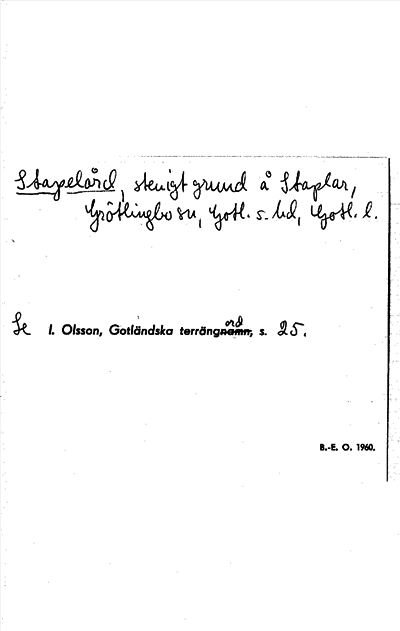 Stapelård, stenigt grund å Staplar,
Grötlingbo sn, Gotl. s. hd, Gotl. l.
Se I. Olsson, Gotländska terrängnamn, ord s. 25.
B.-E. O. 1960.